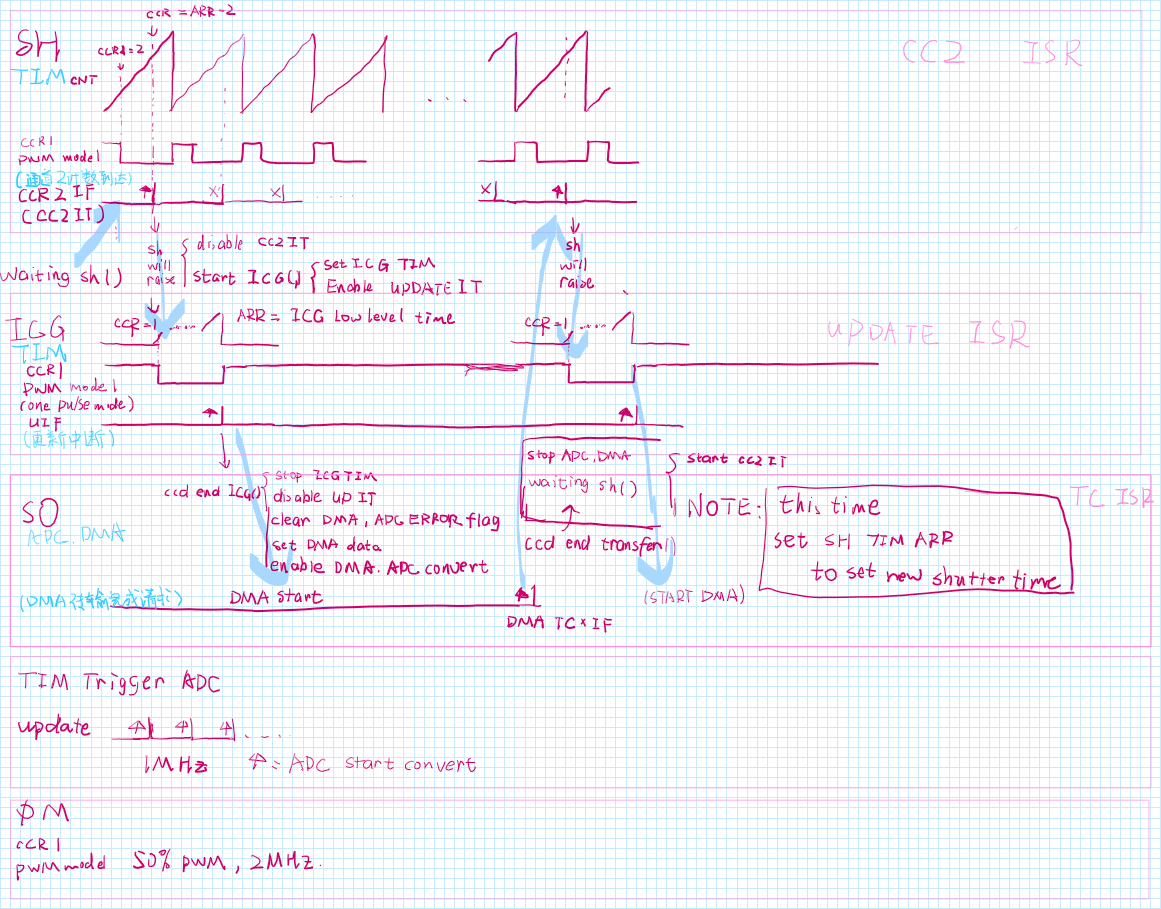 CCR = ARR-2
SH
CCR1=2
TIM CNT
CC2 ISR
CCR1
PWM mode1
(通道2计数到达)
CCR2 IF
(CC2IT)
X
X
X
waiting sh()
sh
will
raise
disable CC2IT
start ICG()
set ICG TIM
Enable UPDATE IT
sh
will
raise
ICG
TIM
CCR=1
ARR = ICG Low level time
CCR=1
UPDATE ISR
CCR1
PWM mode1
(one pulse mode)
UIF
(更新中断)
ccd end ICG()
stop ICG TIM
disable UP IT
clean DMA, ADC ERROR flag
set DMA data
enable DMA. ADC convert
stop ADC, DMA
waiting sh()
start CC2 IT
ccd end transfer()
NOTE:
this time
set SH TIM ARR
to set new shutter time
TC ISR
SO
ADC. DMA
(DMA传输完成请求)
DMA start
(START DMA)
DMA TCxIF
TIM Trigger ADC
update
....
1MHz
= ADC start convert
ΦM
CCR1
PWM mode1
50% PWM, 2MHz.